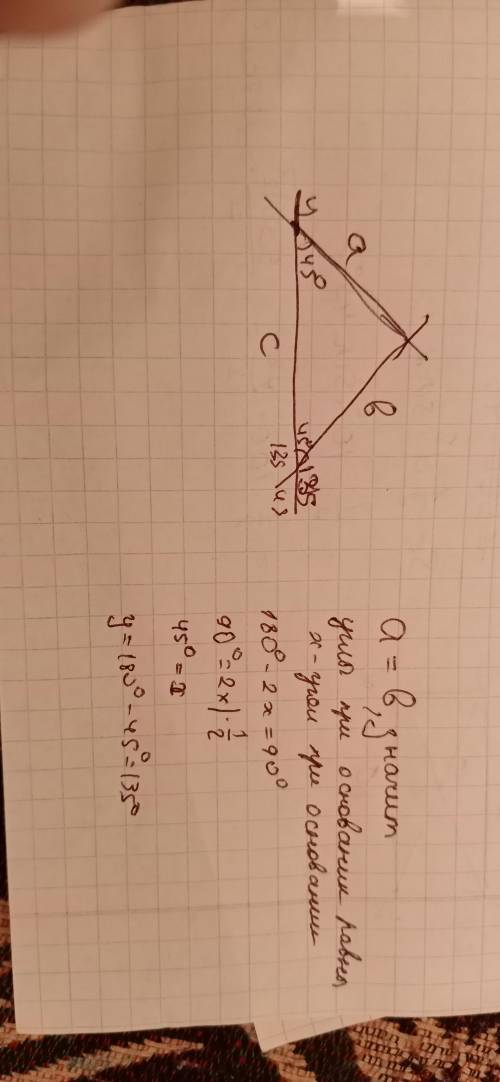 a = b, значит
углы при основании равны
x - угол при основании
180° - 2x = 90°
90° = 2x | · 1/2
45° = x
y = 180° - 45° = 135°
a
y
45°
b
c
45°
135
135
45